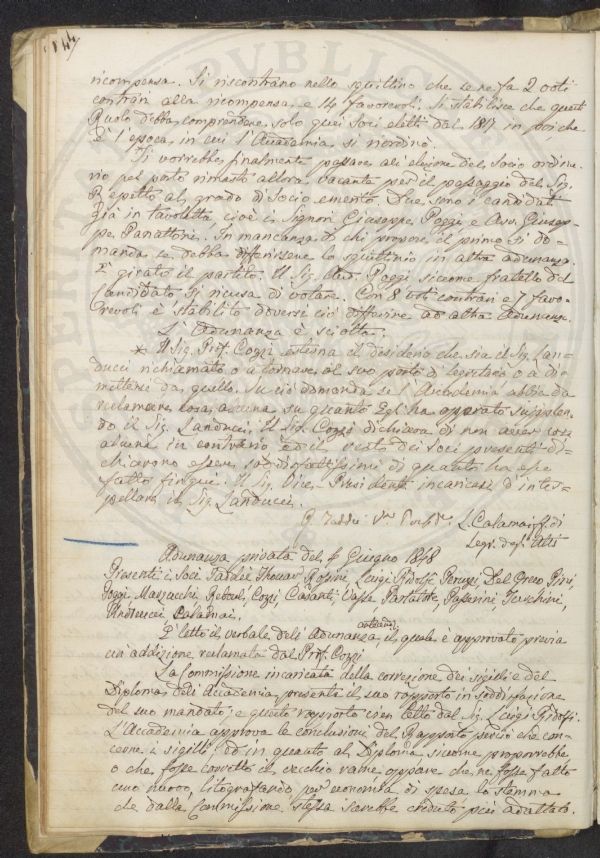 144
ricompensa. Si riscontrano nello squittino che se ne fa 2 voti
contrari alla ricompensa, e 14 favorevoli. Si stabilisce che questo
Ruolo debba comprendere solo quei Soci eletti dal 1817 in poi, che
è l'epoca, in cui l'Accademia si riordinò.
Si vorrebbe finalmente passare alla elezione del Socio ordina-
rio pel posto rimasto allora vacante per il passaggio del Sig.
Repetti al grado di Socio emerito. Due sono i candidati
già in tavoletta cioè i Signori Giuseppe Poggi e Avv. Giusep-
pe Panattoni. In mancanza di chi propose il primo si do-
manda se debba differirsene lo squittinio in altra adunanza.
È girato il partito. Il Sig. Poggi siccome fratello del
Candidato si ricusa di votare. Con 8 voti contrari e 7 favo-
revoli è stabilito doversi ciò differire ad altra Adunanza.
L'Adunanza è sciolta.
* Il Sig. Prof. Cozzi esterna il desiderio che sia il Sig. Lan-
ducci richiamato o a tornare al suo posto di Secretario o a di-
mettersi da quello. Su ciò domanda se l'Accademia abbia da
reclamare cosa alcuna su quanto Egli ha operato supplen-
do il Sig. Landucci. Il Sig. Cozzi dichiara di non aver cosa
alcuna in contrario ed il resto dei Soci presenti di-
chiarono essere soddisfattissimi di quanto ha esso
fatto finquì. Il Sig. Vice-Presidente incaricasi d'inter-
pellare il Sig. Landucci.
G. Taddei V. Presid. L. Calamai ff. di
Segr. degli Atti
Adunanza privata del 4 Giugno 1848
Presenti i Soci Taddei Thouar Rosini, Luigi Ridolfi Peruzzi Del Greco Bini
Poggi Mazzucchi Reboul, Cozzi, Casanti, Vasse, Parlatore, Passerini Zerchini,
Andreucci Calamai.
È letto il verbale dell'Adunanza antecede. il quale è approvato previa
un'addizione reclamata dal Prof. Cozzi
La Commissione incaricata della correzione dei sigilli e del
Diploma dell'Accademia, presenta il suo rapporto in soddisfazione
del suo mandato, e questo rapporto vien letto dal Sig. Luigi Ridolfi.
L'Accademia approva le conclusioni del Rapporto perciò che con-
cerne i sigilli ed in quanto al Diploma siccome proporrebbe
o che fosse corretto il vecchio rame oppure che ne fosse fatto
uno nuovo, litografando per economia di spesa lo stemma
che dalla Commissione stessa sarebbe creduto più adattato.